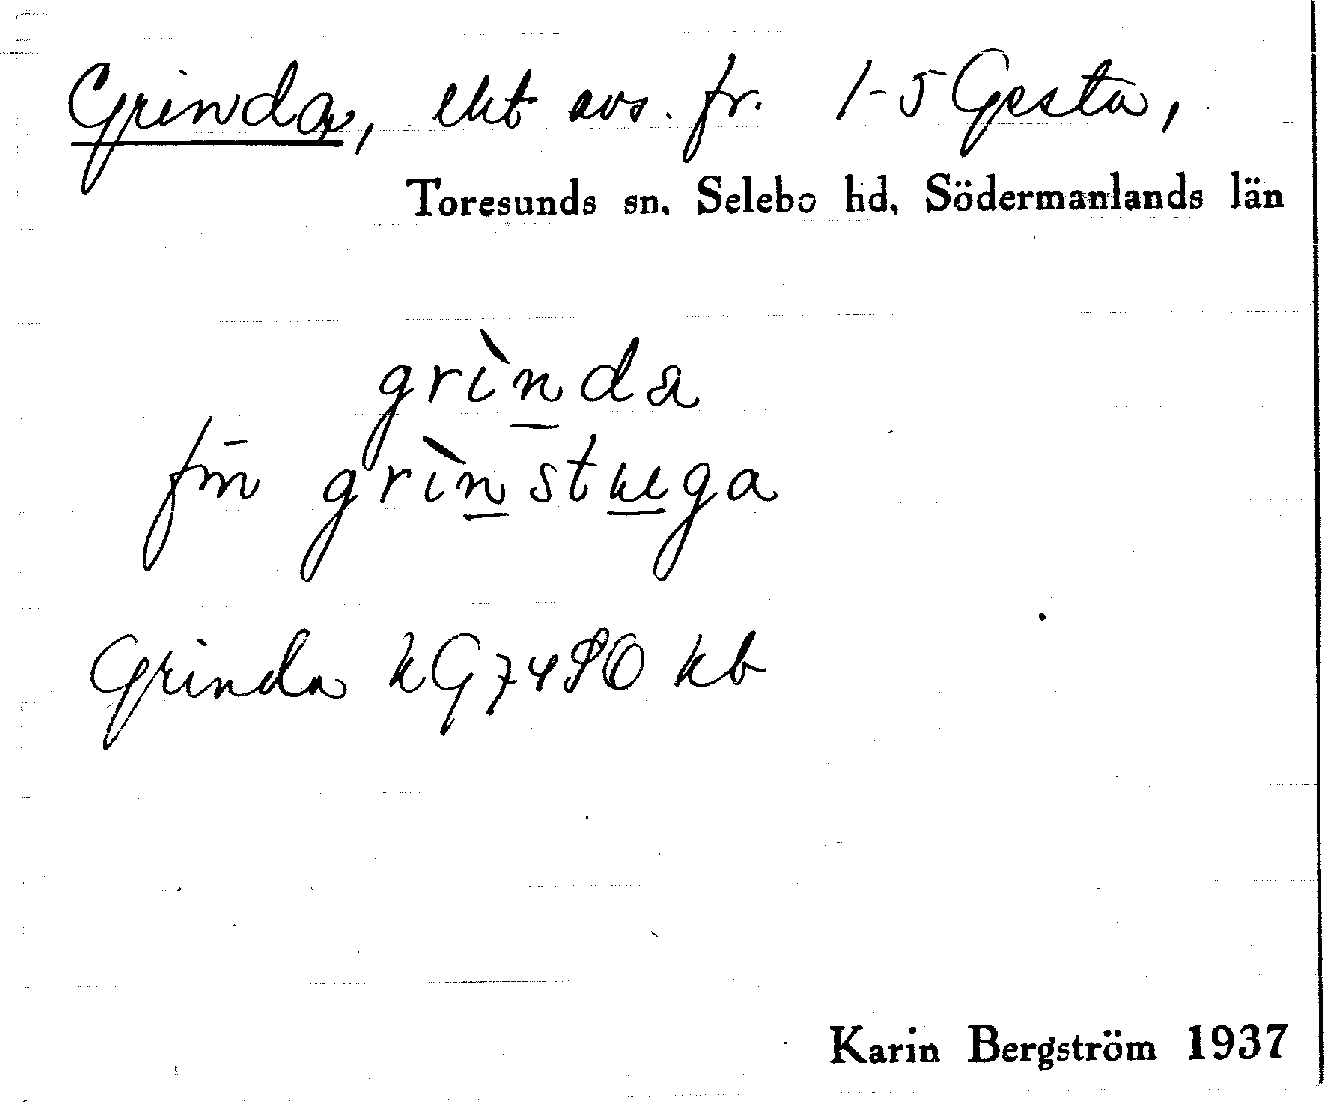 Grinda, lht avs. fr. 1-5 Gesta,
Toresunds sn. Selebo hd, Södermanlands län
grìnda
fm grìnstuga
Grinda kG 7480 kb
Karin Bergström 1937